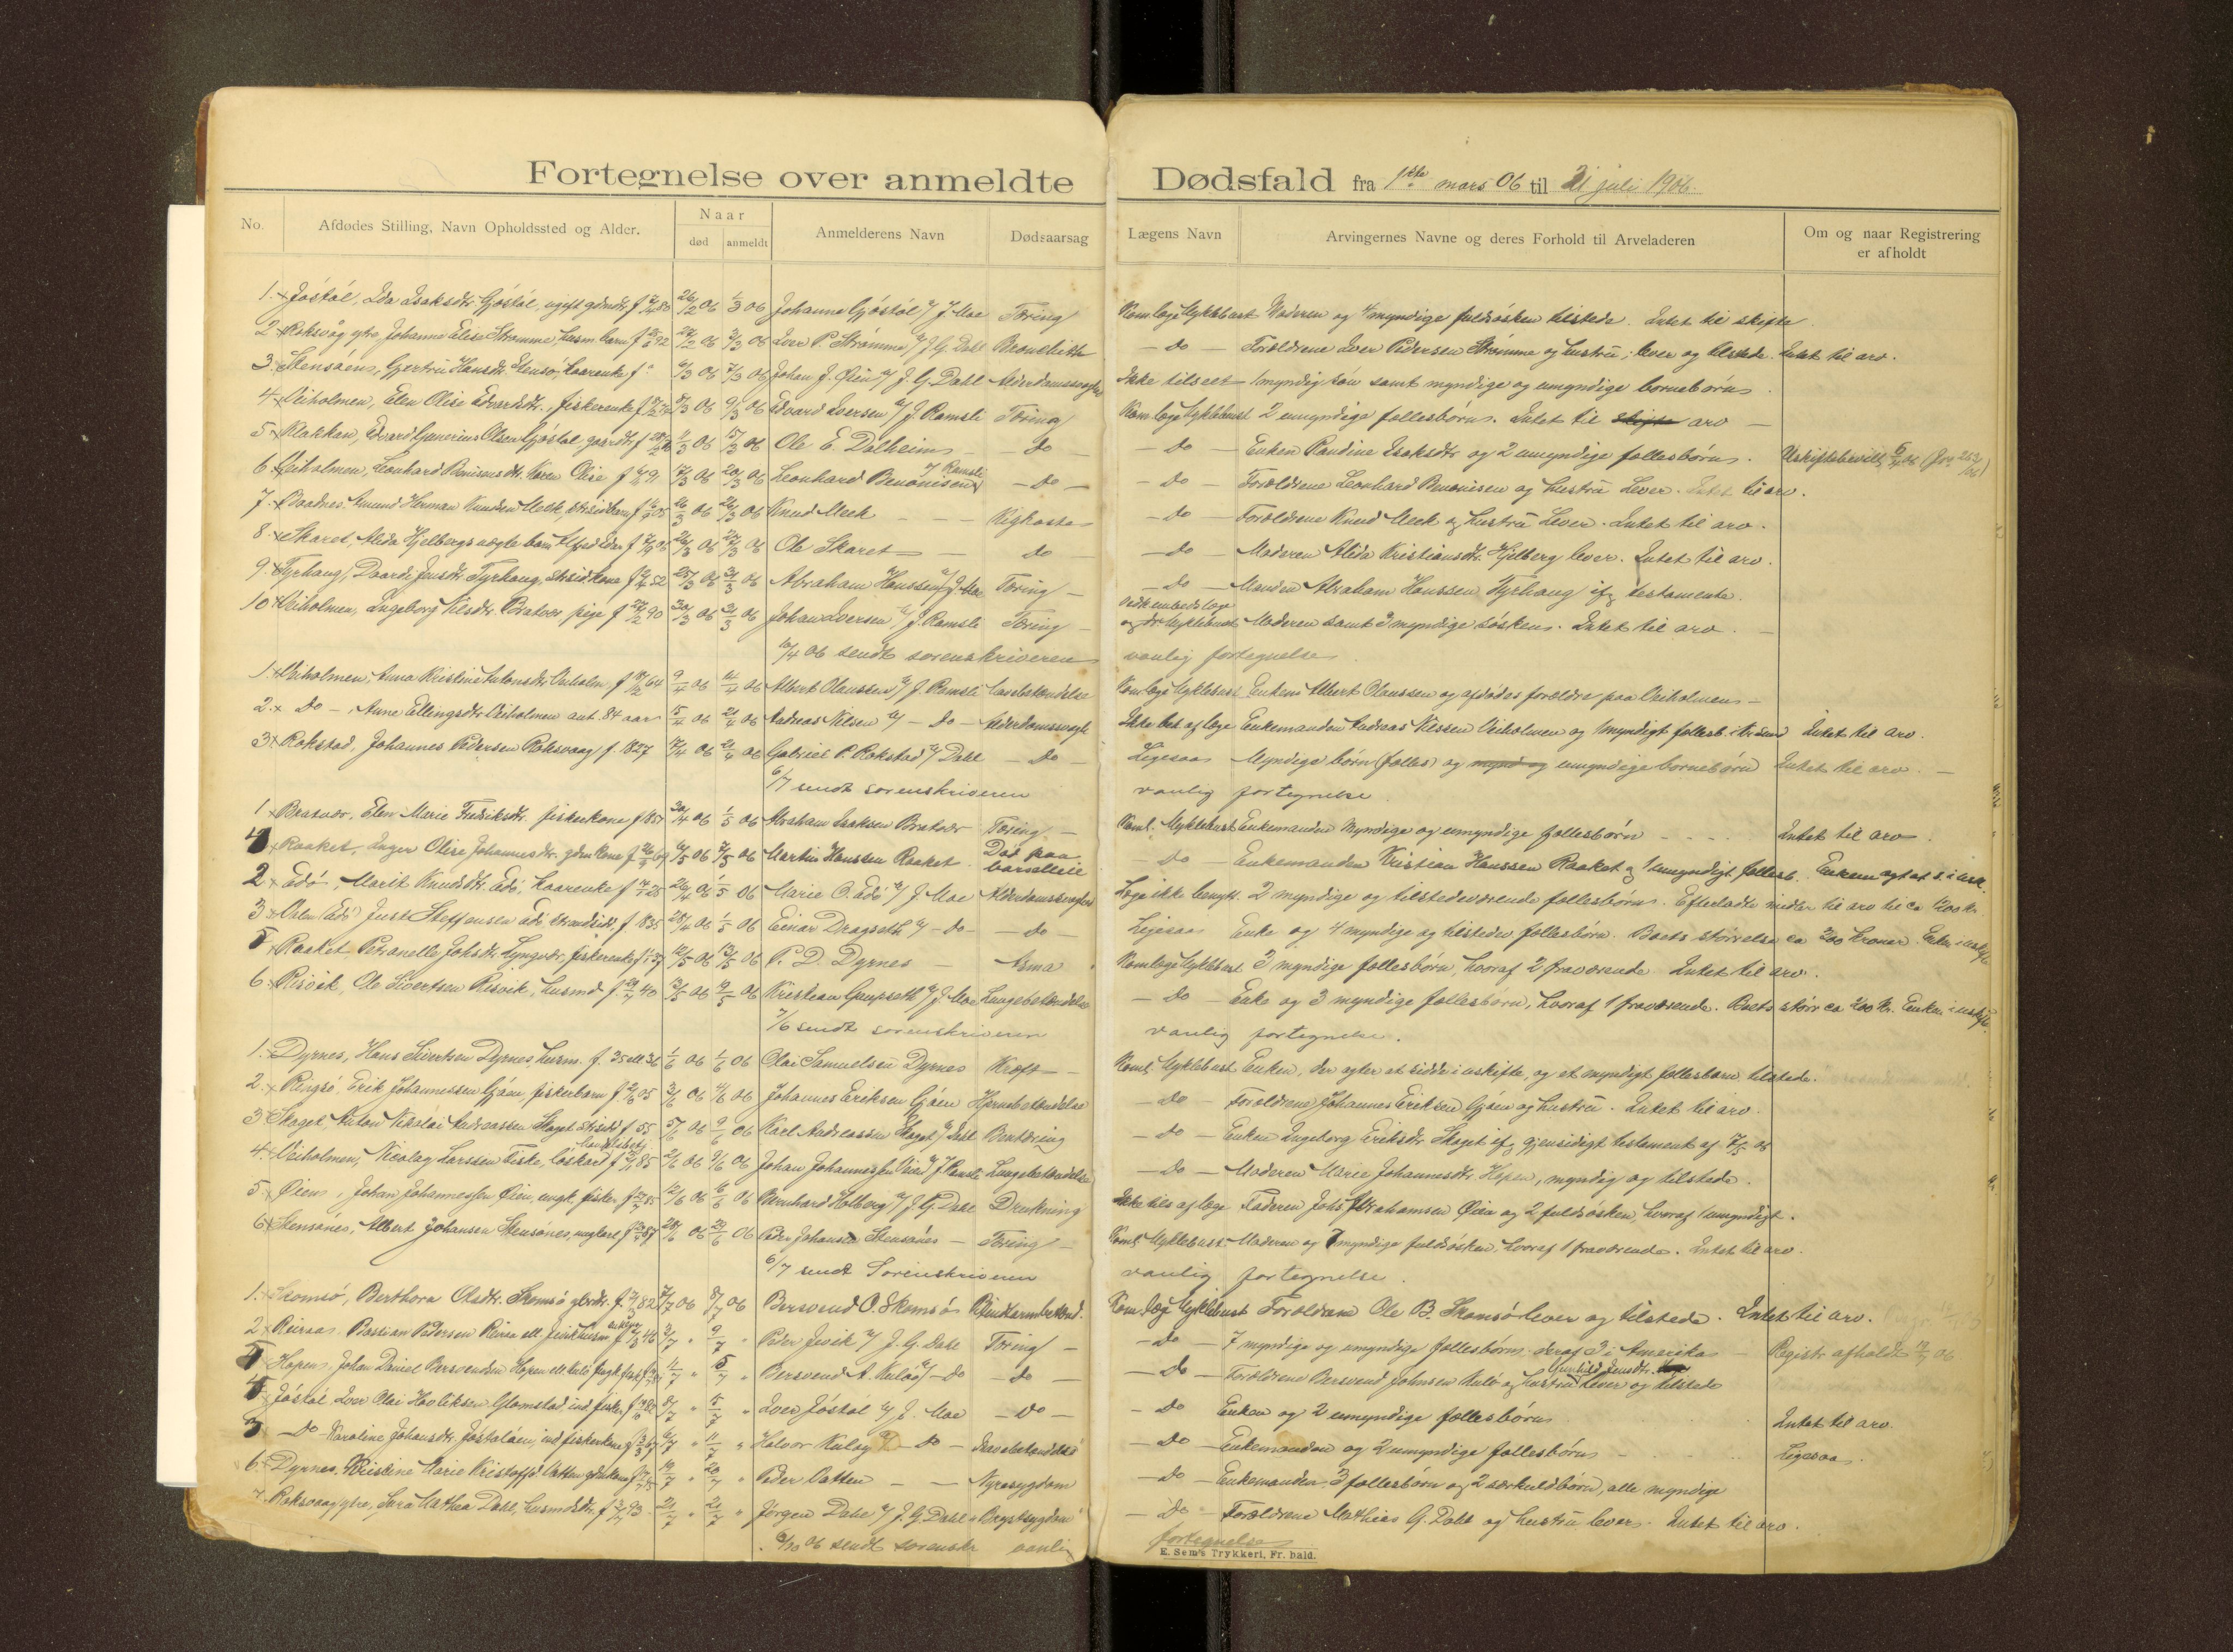 Fortegnelse over anmeldte Dødsfald fra 1ste mars 06 til 21 juli 1906.
No. Afdødes Stilling, Navn Opholdssted og Alder. Naar død anmeldt Anmelderens Navn Dødsaarsag Lægens Navn Arvingernes Navne og deres Forhold til Arveladeren Om og naar Registrering er afholdt
1. Jøstøl, Ida Isaksdtr. Gjøstøl, ugift gdmdtr. 26/2 06 1/3 06 Johanna Gjøstøl v/ J. Moe Tæring Kom.læge Myklebust Moderen og 4 myndige fuldsøsken tilstede. Intet til skifte
2 Roksvåg ytre Johanne Elise Strømme, husm. barn 27/2 06 2/3 06 Iver P. Strømme v/ J. G. Dahl Bronchitis - do - Forældrene Iver Pedersen Strømme og hustru, lever og tilstede. Intet til arv.
3. Stensøen, Gjertru Hansdtr. Stensø, kaarenke f. " 6/3 06 7/3 06 Johan J. Øien v/ J. G. Dahl Alderdomssvaghed Ikke tilseet 1 myndig søn samt myndige og umyndige børnebørn
4 Veiholmen, Elen Olise Edvardsdtr., fiskerenke 8/3 06 9/3 06 Edvard Iversen v/ J. Ramsli Tæring Kom.læge Myklebust 2 umyndige fællesbørn. Intet til skifte arv -
5 Klakkan, Edvard Gunerius Olsen Gjøstøl 11/3 06 15/3 06 Ole E. Dalheim - do - - do - Enken Paudine Isaksdtr og 2 umyndige fællesbørn. Uskiftebevill.
6. Veiholmen, Leonhard Benonisens dtr. Karen Olise 17/3 06 20/3 06 Leonhard Benonisen v/ Ramsli - do - - do - Forældrene Leonhard Benonisen og hustru lever. Intet til arv.
7. Bondnes. Amund Herman Knudsen Meek, 06 26/3 06 Knud Meek - - - Kighoste - do - Forældrene Knud Meek og hustru lever. Intet til arv.
8. Skaret, Alida Hjelbergs uægte barn Alfred Edas 26/3 06 27/3 06 Ole Skaret - do - do - Moderen Alida Kristiansdtr. Hjelberg lever. Intet til arv.
9. Tyrhaug, Jensdtr. Tyrhaug, 31/3 06 Abraham Hanssen v/ J. Moe Tæring - - do - Manden Abraham Hanssen Tyrhaug ifg testamente.
10 Veiholmen, Ingeborg Nilsdtr. Bratvær pige 90 30/3 06 31/3 06 Johan Iversen v/ J. Ramsli Tæring - og dr Myklebust Moderen samt 3 myndige søsken. Intet til arv. -
10/4 06 sendt sorenskriveren vanlig fortegnelse.
1. Veiholmen, Anna Kristine Antonsdtr. Veiholm 64 9/4 06 14/4 06 Albert Olaussen v/ J. Ramsli Kom.læge Myklebust Enkem. Albert Olaussen og afdødes forældre paa Veiholmen -
2. - Do - Anne Ellingsdtr Veiholmen ant. 84 aar 15/4 06 21/4 06 Andreas Nilsen v/ - Do - Alderdomssvagh. Ikke beh af læge Enkemanden Andreas Nilssen Veiholmen og 1 myndigt fællesb. Intet til arv.
3 Rokstad, Johannes Pedersen Roksvaag f. 1827 17/4 06 21/4 06 Gabriel P. Rokstad v/ Dahl - Do - Ligesaa Myndige børn (fælles) og mynd og umyndige børnebørn Intet til arv. -
6/7 sendt sorenskriveren vanlig fortegnelse
1 Bratvær, Elen Marie Fredriksdtr. fiskerkone f 1857 30/4 06 1/5 06 Abraham Isaksen Bratvær Tæring - Koml. Myklebust Enkemanden Myndige og umyndige fællesbørn - - - Intet til arv.
4 Raaket, Inger Olise Johannesdtr. gdm kone 6/5 06 7/5 06 Martin Hanssen Raaket Død paa barselleie - do - Enkemanden Kristian Hanssen Raaket og 1 umyndigt fællesb. Enkem agt at s. i usk.
2 Edø, Marit Knudsdtr. Edø, kaarenke 26/4 06 1/5 06 Marie O. Edø v/ J. Moe Alderdomssvaghed Læge ikke benytt. 2 myndige og tilstedeværende fællesbørn. Efterladte midler til arv til ca 1200 kr.
3 (Edø) Just Steffensen Edø strandsidd, f 1835 28/4 06 1/5 06 Einar Dragseth v/ - Do - - do - Ligesaa Enke og 4 myndige og tilstedev. fællesbørn. Boets størrelse ca 300 kroner. Enke i uskift
5 Raaket Petranelle Johsdtr. Lyngvær, fiskerenke f 1837 12/5 06 13/5 06 P. D. Dyrnes - Asma Komlæge Myklebust 3 myndige fællesbørn, hvoraf 2 fraværende. Intet til arv.
6. Risvik, Ole Sivertsen Risvik, husmd. 40 06 Kristian Gaupseth v/ J. Moe Lungebetændelse - do - Enke og 3 myndige fællesbørn, hvoraf 1 fraværende. Boets større ca 200 kr. Enken i uskift.
7/6 sendt sorenskriveren vanlig fortegnelse.
1. Dyrnes, Hans Sivertsen Dyrnes, husm. f. 35 ell 36 1/6 06 1/6 06 Olai Samuelsen Dyrnes Kræft - Koml. Myklebust Enken, der agter at sidde i uskifte, og et myndigt fællesbarn tilstede.
2. Ringsø, Erik Johannessen Gjøen, fiskerbarn 05 3/6 06 4/6 06 Johannes Eriksen Gjøen Hjernebetændelse - do - Forældrene Johannes Eriksen Gjøen og hustru. Intet til arv.
3 Skaget, Anton Nikolai Andreassen Skaget f 55 5/6 06 9/6 06 Karl Andreassen Skaget v/ Dahl Bentæring - do - Enken Ingeborg Eriksdtr. Skaget ifg gjensidigt testament af 7/5 06
4. Veiholmen, Nicolay Larssen Fiske, løskarl 85 2/6 06 9/6 06 Johan Johannessen v/ J. Ramsli Lungebetændelse - do - Moderen Marie Johannesdtr. Hopen, myndig og tilstede.
5. Øien, Johan Johannessen Øien, ungk. fisker 85 12/6 06 16/6 06 Bernhard Holberg v/ J. G. Dahl Drukning Ikke tils af læge Faderen Johs Abrahamsen Øien og 2 fuldsøsken, hvoraf 1 umyndigt.
6 Stensønes, Albert Johansen Stensønes, ungkarl 87 28/6 06 29/6 06 Peder Johansen Stensønes - Tæring - Koml. Myklebust. Moderen og 7 myndige fuldsøsken, hvoraf 1 fraværende. Intet til arv.
6/7 sendt Sorenskriveren vanlig fortegnelse.
1. Skomsø, Berthora Olsdtr. Skomsø 82 7/7 06 8/7 06 Bersvend O. Skomsø Blindtarmbetænd. Kom.læge Myklebust Forældrene Ole B. Skomsø lever og tilstede. Intet til arv.
2 Reiraa. Bastian Pedersen Reiraa ell. Jevik husm 46 3/7 9/7 " Peder Jevik v/ J. G. Dahl Tæring - - do - 7 myndige og umyndige fællesbørn, deraf 3 i Amerika - Registr. afholdt 06
Hopen, Johan Daniel Bersvendsen Hopen ell. Kulø 11/7 " 15/7 " Bersvend A. Kulø v/ - Do - do - - Do - Forældrene Bersvend Johnsen Kulø og hustru Gunhild Jensdtr. lever og tilstede
Jøstøl, Iver Olai Hovliksen Glomstad, ind. fisker 8/7 " 15/7 " Iver Jøstøl v/ J. Moe - Do - - Do Enken og 2 umyndige fællesbørn Intet til arv.
3 - Do - Karoline Johansdtr. Jøstøløen, ind. fiskerkone 6/7 " 11/7 " Halvor Kuløy v/ - Do - - Do - Enkemanden og 2 umyndige fællesbørn - Ligesaa.
6. Dyrnes, Kristine Marie Kristoffsd Vatten gdm kone 19/7 " 20/7 " Peder Vatten - - Nyresygdom - Do - Enkemanden, 3 fællesbørn og 2 særkuldbørn, alle myndige
7 Roksvaag ytre, Sara Mathea Dahl, husmdsdtr. 93 21/7 " 21/7 " Jørgen Dahl v/ J. G. Dahl Brystsygdom - Do - Forældrene Mathias G. Dahl og hustru lever. Intet til arv.
6/10 06 sendt sorenskr vanlig fortegnelse
E. Sem's Trykkeri, Fr.hald.